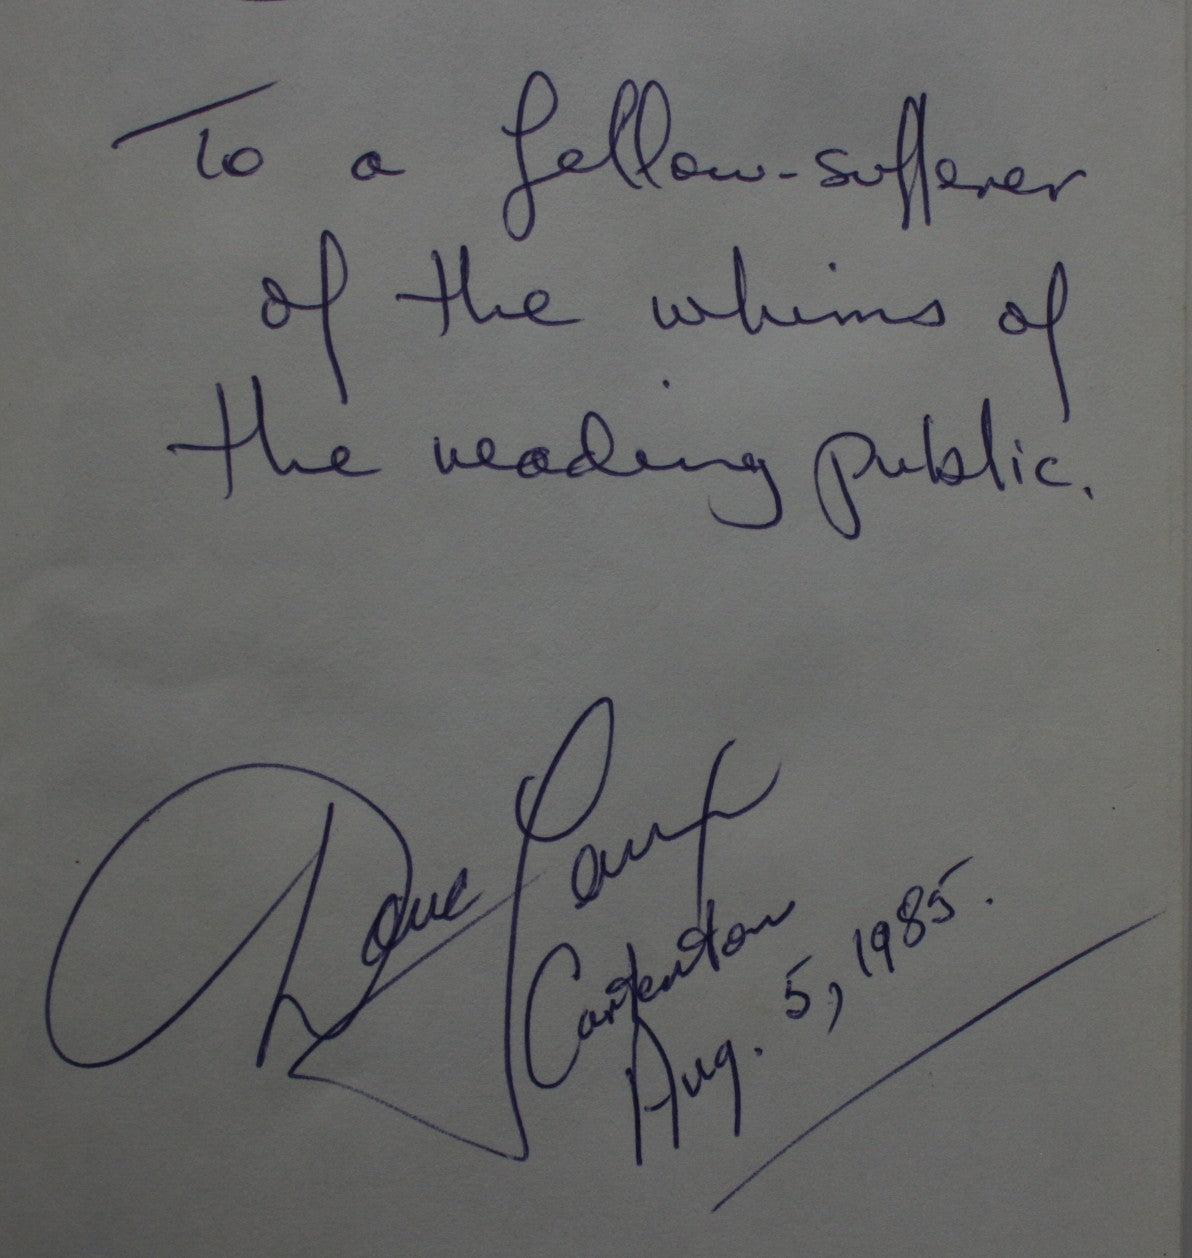 To a fellow-sufferer
of the whims of
the reading public.
Dave
Carterton
Aug. 5, 1985.